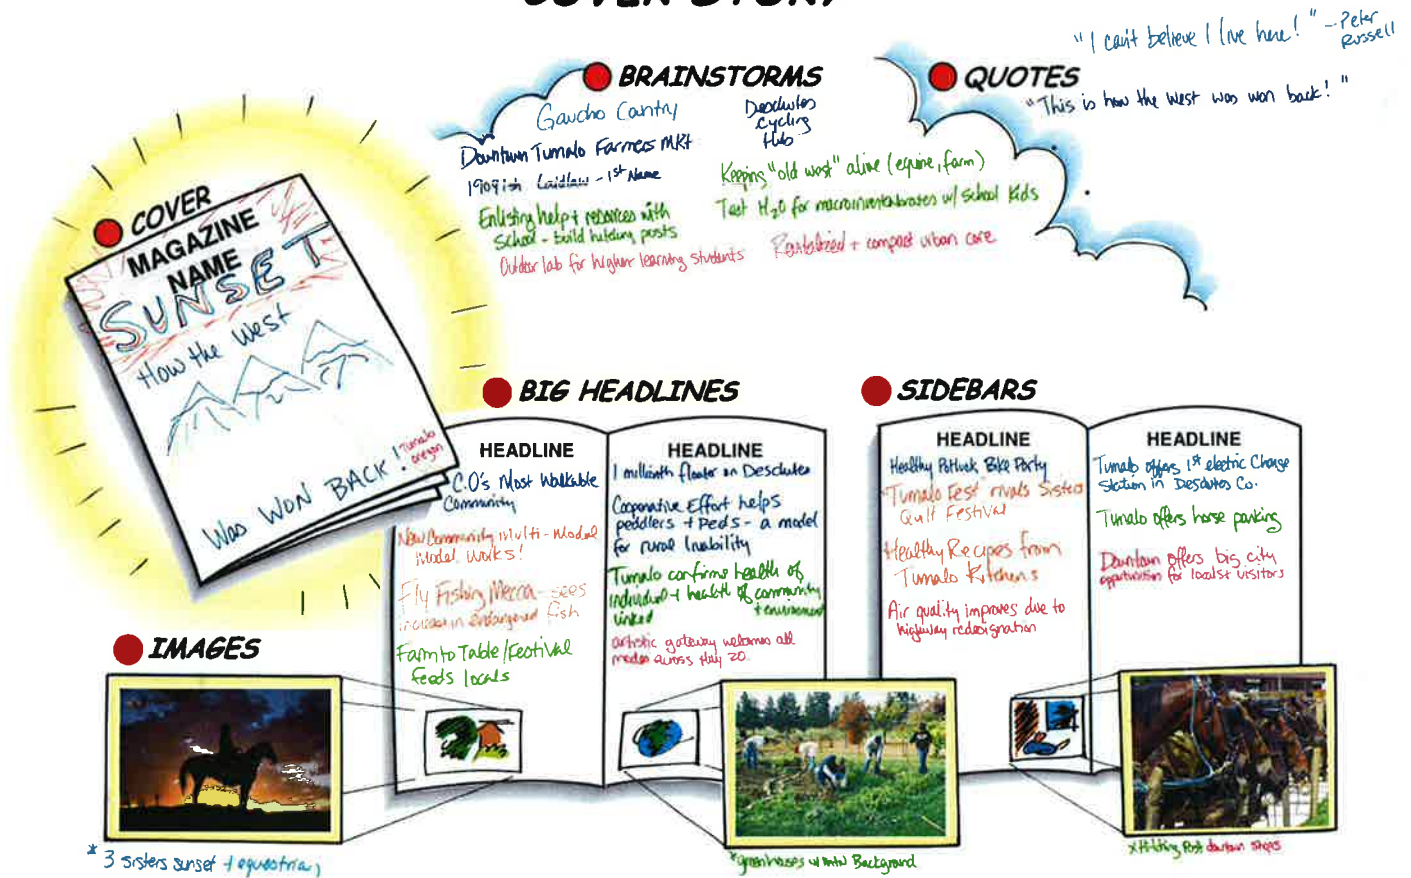 COVER STORY
"I can't believe I live here!" - Peter
Russell
BRAINSTORMS
QUOTES
"This is how the West was won back!"
Gaucho Country
Deschutes
Cycling
Hub
Downtown Tumalo Farmers MKt
1909ish Laidlaw - 1st Name
Keeping "old west" alive (equine, farm)
Enlisting help + resources with
School - build hitching posts
Test H2O for macroinvertebrates w/ School Kids
Outdoor lab for higher learning students
Revitalized + compact urban core
COVER
MAGAZINE
NAME
SUNSET
How the West
Was WON BACK!
Tumalo
Oregon
BIG HEADLINES
HEADLINE
C.O's Most Walkable
Community
New Community Multi-Modal
Model Works!
Fly Fishing Mecca - sees
increase in endangered fish
Farm to Table/Festival
feeds locals
HEADLINE
1 millionth floater on Deschutes
Cooperative Effort helps
peddlers + Peds - a model
for rural livability
Tumalo confirms health of
individual + health of community
+ environment
linked
artistic gateway welcomes all
modes across Hwy 20.
SIDEBARS
HEADLINE
Healthy Potluck Bike Party
"Tumalo Fest" rivals Sisters
Quilt Festival
Healthy Recipes from
Tumalo Kitchens
Air quality improves due to
highway redesignation
HEADLINE
Tumalo offers 1st electric Charge
Station in Deschutes Co.
Tumalo offers horse parking
Downtown offers big city
opportunities for locals + visitors
IMAGES
* 3 Sisters sunset + equestrian
*greenhouses w mtn Background
* Hitching Post downtown shops